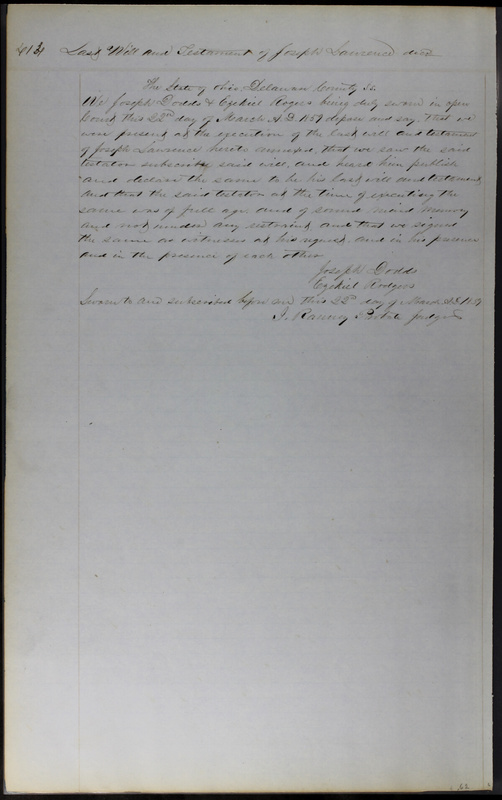 413 Last Will and Testament of Joseph Lawrence decd
The State of Ohio Delaware County Ss.
We Joseph Dodds & Ezekiel Rogers being duly sworn in open
Court this 22nd day of March A.D. 1859 depose and say, that we
were present at the execution of the last will and testament
of Joseph Lawrence hereto annexed, that we saw the said
testator subscribe said will, and heard him publish
and declare the same to be his last will and testament
and that the said testator at the time of executing the
same was of full age and of sound mind memory
and not under any restraint, and that we signed
the same as witnesses at his request, and in his presence
and in the presence of each other
Joseph Dodds
Ezekiel Rodgers
Sworn to and subscribed before me this 22d day of March A.D. 1859
J. Ranney Probate Judge